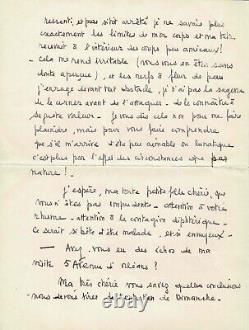 ressent, et pas sitôt arrêté je ne savais plus
exactement les limites de mon corps et ma tête
à l'intérieur des corps peu amicaux!
cela me rend irritable (vous vous en êtes sans
doute aperçue), et les nerfs à fleur de peau
j'enrage devant tout obstacle, je n'ai pas la sagesse
de le cerner avant de l'attaquer - de le connaître à
sa juste valeur - Je vous dis cela non pour me faire
plaindre, mais pour vous faire comprendre
que si je m'arrive d'être peu aimable ou lunatique
c'est plus par l'effet des circonstances que par
nature!
J'espère, ma toute petite fille chérie, que
vous n'êtes pas imprudente - attention à votre
rhume - attention à la contagion diphtérique -
ce serait si bête d'être malade, et si ennuyeux -
- Avez-vous eu des échos de ma
visite 5 Avenue d'Orléans?
Ma très chérie vous savez quelles conclusions
nous devons tirer de l'expédition de Dimanche -
ssjoly.biz